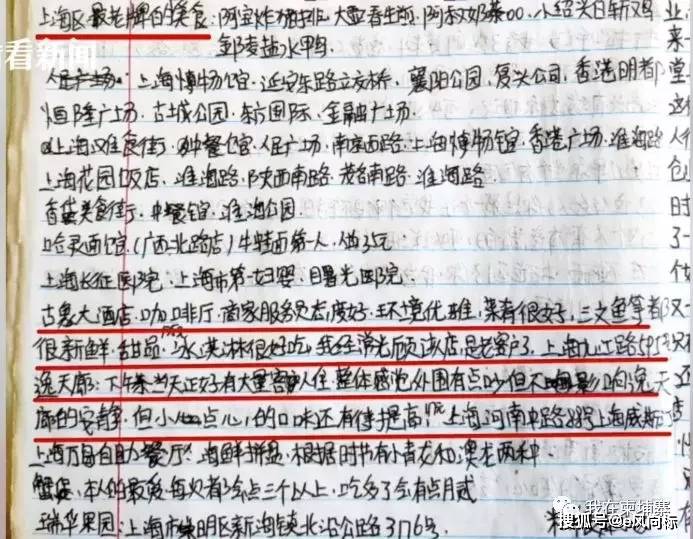 看看新闻
上海区最老牌的美食:阿宝炸猪排、大壶春生煎、阿叔奶茶00、小绍兴白斩鸡
盐水鸭
人民广场、上海博物馆、延安东路立交桥、襄阳公园、复兴公司、香港明都
恒隆广场、古城公园、东方国际、金融广场
上海美食街、中餐馆、人民广场、南京西路、上海博物馆、香港广场、淮海路
上海花园饭店、淮海路、陕西南路、茂名南路、淮海路
美食街、中餐馆、淮海公园
哈灵面馆、(广西北路店)牛蛙面第一人、
上海长征医院、上海市第一妇婴、曙光医院
古象大酒店、咖啡厅、商家服务员态度好、环境优雅、菜肴很好、三文鱼等都
很新鲜、甜品、冰淇淋很好吃、我经常光顾该店、是老客户了、上海九江路595
逸天廊:下午茶当天正好有大量客人住、整体感觉外围有点吵但不影响逸天
廊的安静、但小点心的口味还有待提高、上海河南中路88号上海威斯
上海万豪自助餐厅:海鲜拼盘、根据时节有小青龙和澳龙两种
蟹店、本人的最爱每次都会点三个以上、吃多了会有点
瑞华果园:上海市崇明区新海镇北沿公路3176号
业
来
堂
人
仓
时
了
我在柬埔寨
搜狐号@